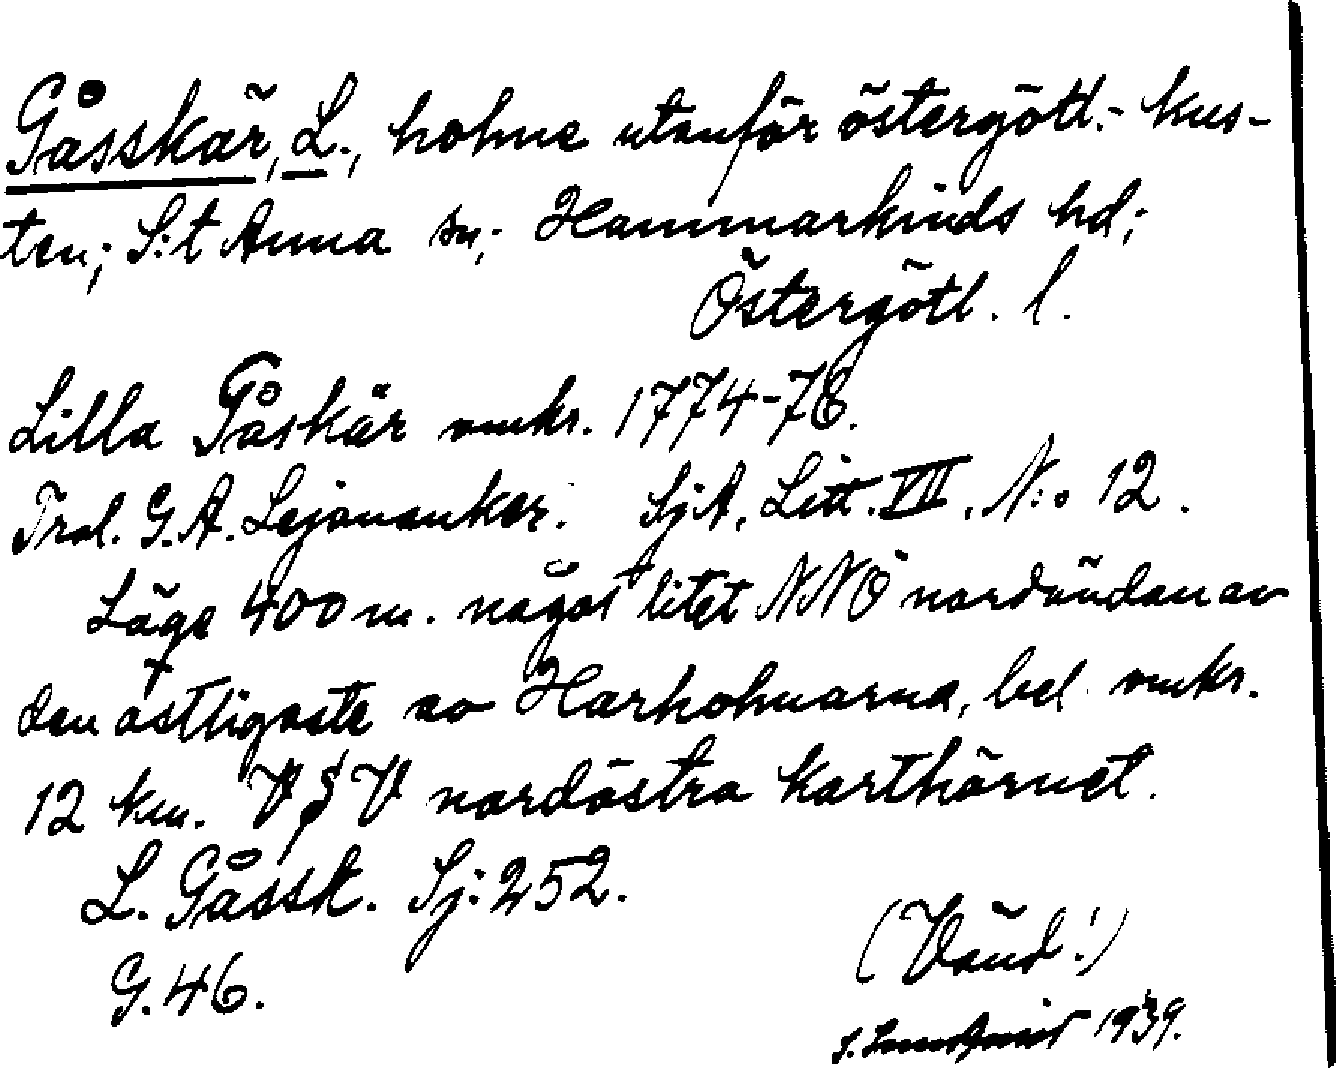 Gåsskär, L., holme utanför östergötl.- kus-
ten; S:t Anna sn; Hammarkinds hd;
Östergötl. l.
Lilla Gåskär omkr. 1774-78.
Trol. G.A. Lejonanker. SjA, Litt. VII, N:o 12.
Läge 400 m. något litet NNÖ nordändan av
den östligaste av Harholmarna, bel. omkr.
12 km. V§V nordöstra karthörnet.
L. Gåssk. Sj: 252.
G. 46.
(Vänd!)
1939.